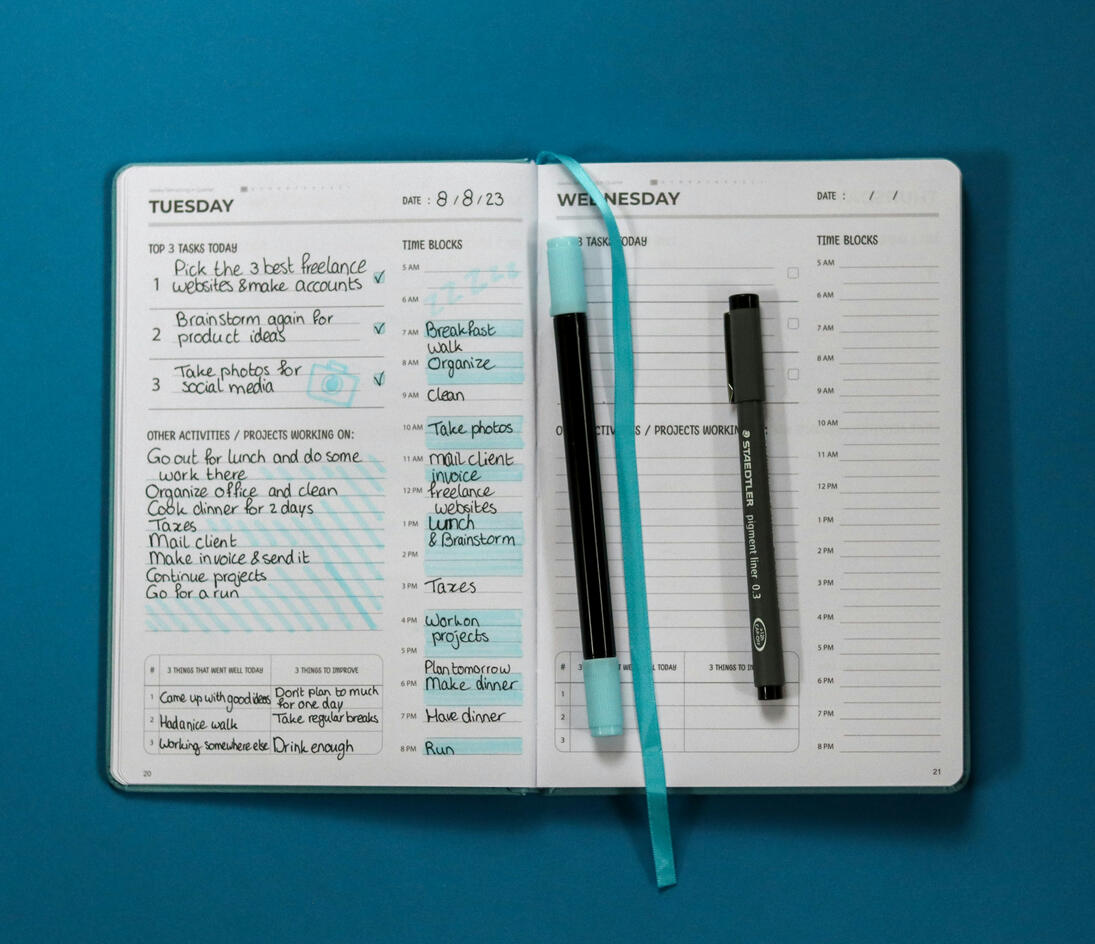 TUESDAY
DATE : 8/8/23
TOP 3 TASKS TODAY
1 Pick the 3 best freelance
websites & make accounts
2 Brainstorm again for
product ideas
3 Take photos for
social media
OTHER ACTIVITIES / PROJECTS WORKING ON:
Go out for lunch and do some
work there
Organize office and clean
Cook dinner for 2 days
Taxes
Mail client
Make invoice & send it
Continue projects
Go for a run
# 3 THINGS THAT WENT WELL TODAY 3 THINGS TO IMPROVE
1 Came up with good ideas Don't plan to much
for one day
2 Had a nice walk Take regular breaks
3 Working somewhere else Drink enough
20
TIME BLOCKS
5 AM zzzzz
6 AM
7 AM Breakfast
walk
8 AM Organize
9 AM Clean
10 AM Take photos
11 AM mail client
invoice
12 PM freelance
websites
1 PM Lunch
& Brainstorm
2 PM
3 PM Taxes
4 PM Work on
projects
5 PM
Plan tomorrow
6 PM Make dinner
7 PM Have dinner
8 PM Run
WEDNESDAY
DATE : / /
3 TASKS TODAY
ACTIVITIES / PROJECTS WORKING :
# 3 TODAY 3 THINGS TO
1
2
3
TIME BLOCKS
5 AM
6 AM
7 AM
8 AM
9 AM
10 AM
11 AM
12 PM
1 PM
2 PM
3 PM
4 PM
5 PM
6 PM
7 PM
8 PM
21
STAEDTLER pigment liner 0.3